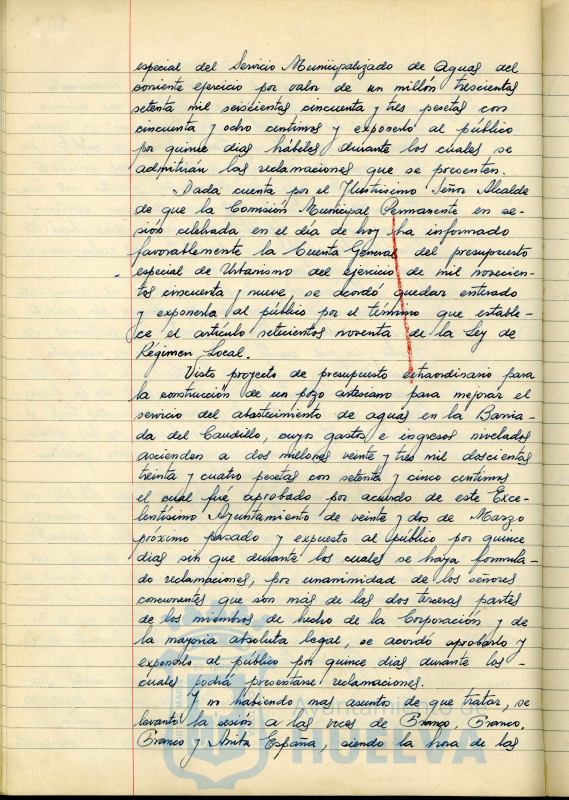 especial del Servicio Municipalizado de Aguas del
corriente ejercicio por valor de un millón trescientas
setenta mil seiscientas cincuenta y tres pesetas con
cincuenta y ocho centimos y exponerlo al público
por quince dias hábiles durante los cuales se
admitirán las reclamaciones que se presenten.
Dada cuenta por el Ilustrisimo Señor Alcalde
de que la Comisión Municipal Permanente en se-
sión celebrada en el dia de hoy ha informado
favorablemente la Cuenta General del presupuesto
especial de Urbanismo del ejercicio de mil novecien-
tos cincuenta y nueve, se acordó quedar enterado
y exponerla al público por el término que estable-
ce el artículo setecientos noventa de la Ley de
Régimen Local.
Visto proyecto de presupuesto extraordinario para
la construcción de un pozo artesiano para mejorar el
servicio del abastecimiento de aguas en la Barria-
da del Caudillo, cuyos gastos e ingresos nivelados
ascienden a dos millones veinte y tres mil doscientas
treinta y cuatro pesetas con setenta y cinco centimos
el cual fué aprobado por acuerdo de este Exce-
lentísimo Ayuntamiento de veinte y dos de Marzo
proximo pasado y expuesto al público por quince
dias sin que durante los cuales se haya formula-
do reclamaciones, por unanimidad de los señores
concurrentes que son más de las dos terceras partes
de los miembros de hecho de la Corporación y de
la mayoria absoluta legal, se acordó aprobarlo y
exponerlo al público por quince dias durante los
cuales podrá presentarse reclamaciones.
Y no habiendo mas asunto de que tratar, se
levantó la sesión a las voces de Franco, Franco,
Franco y Arriba España, siendo la hora de las
Ayuntamiento de
HUELVA